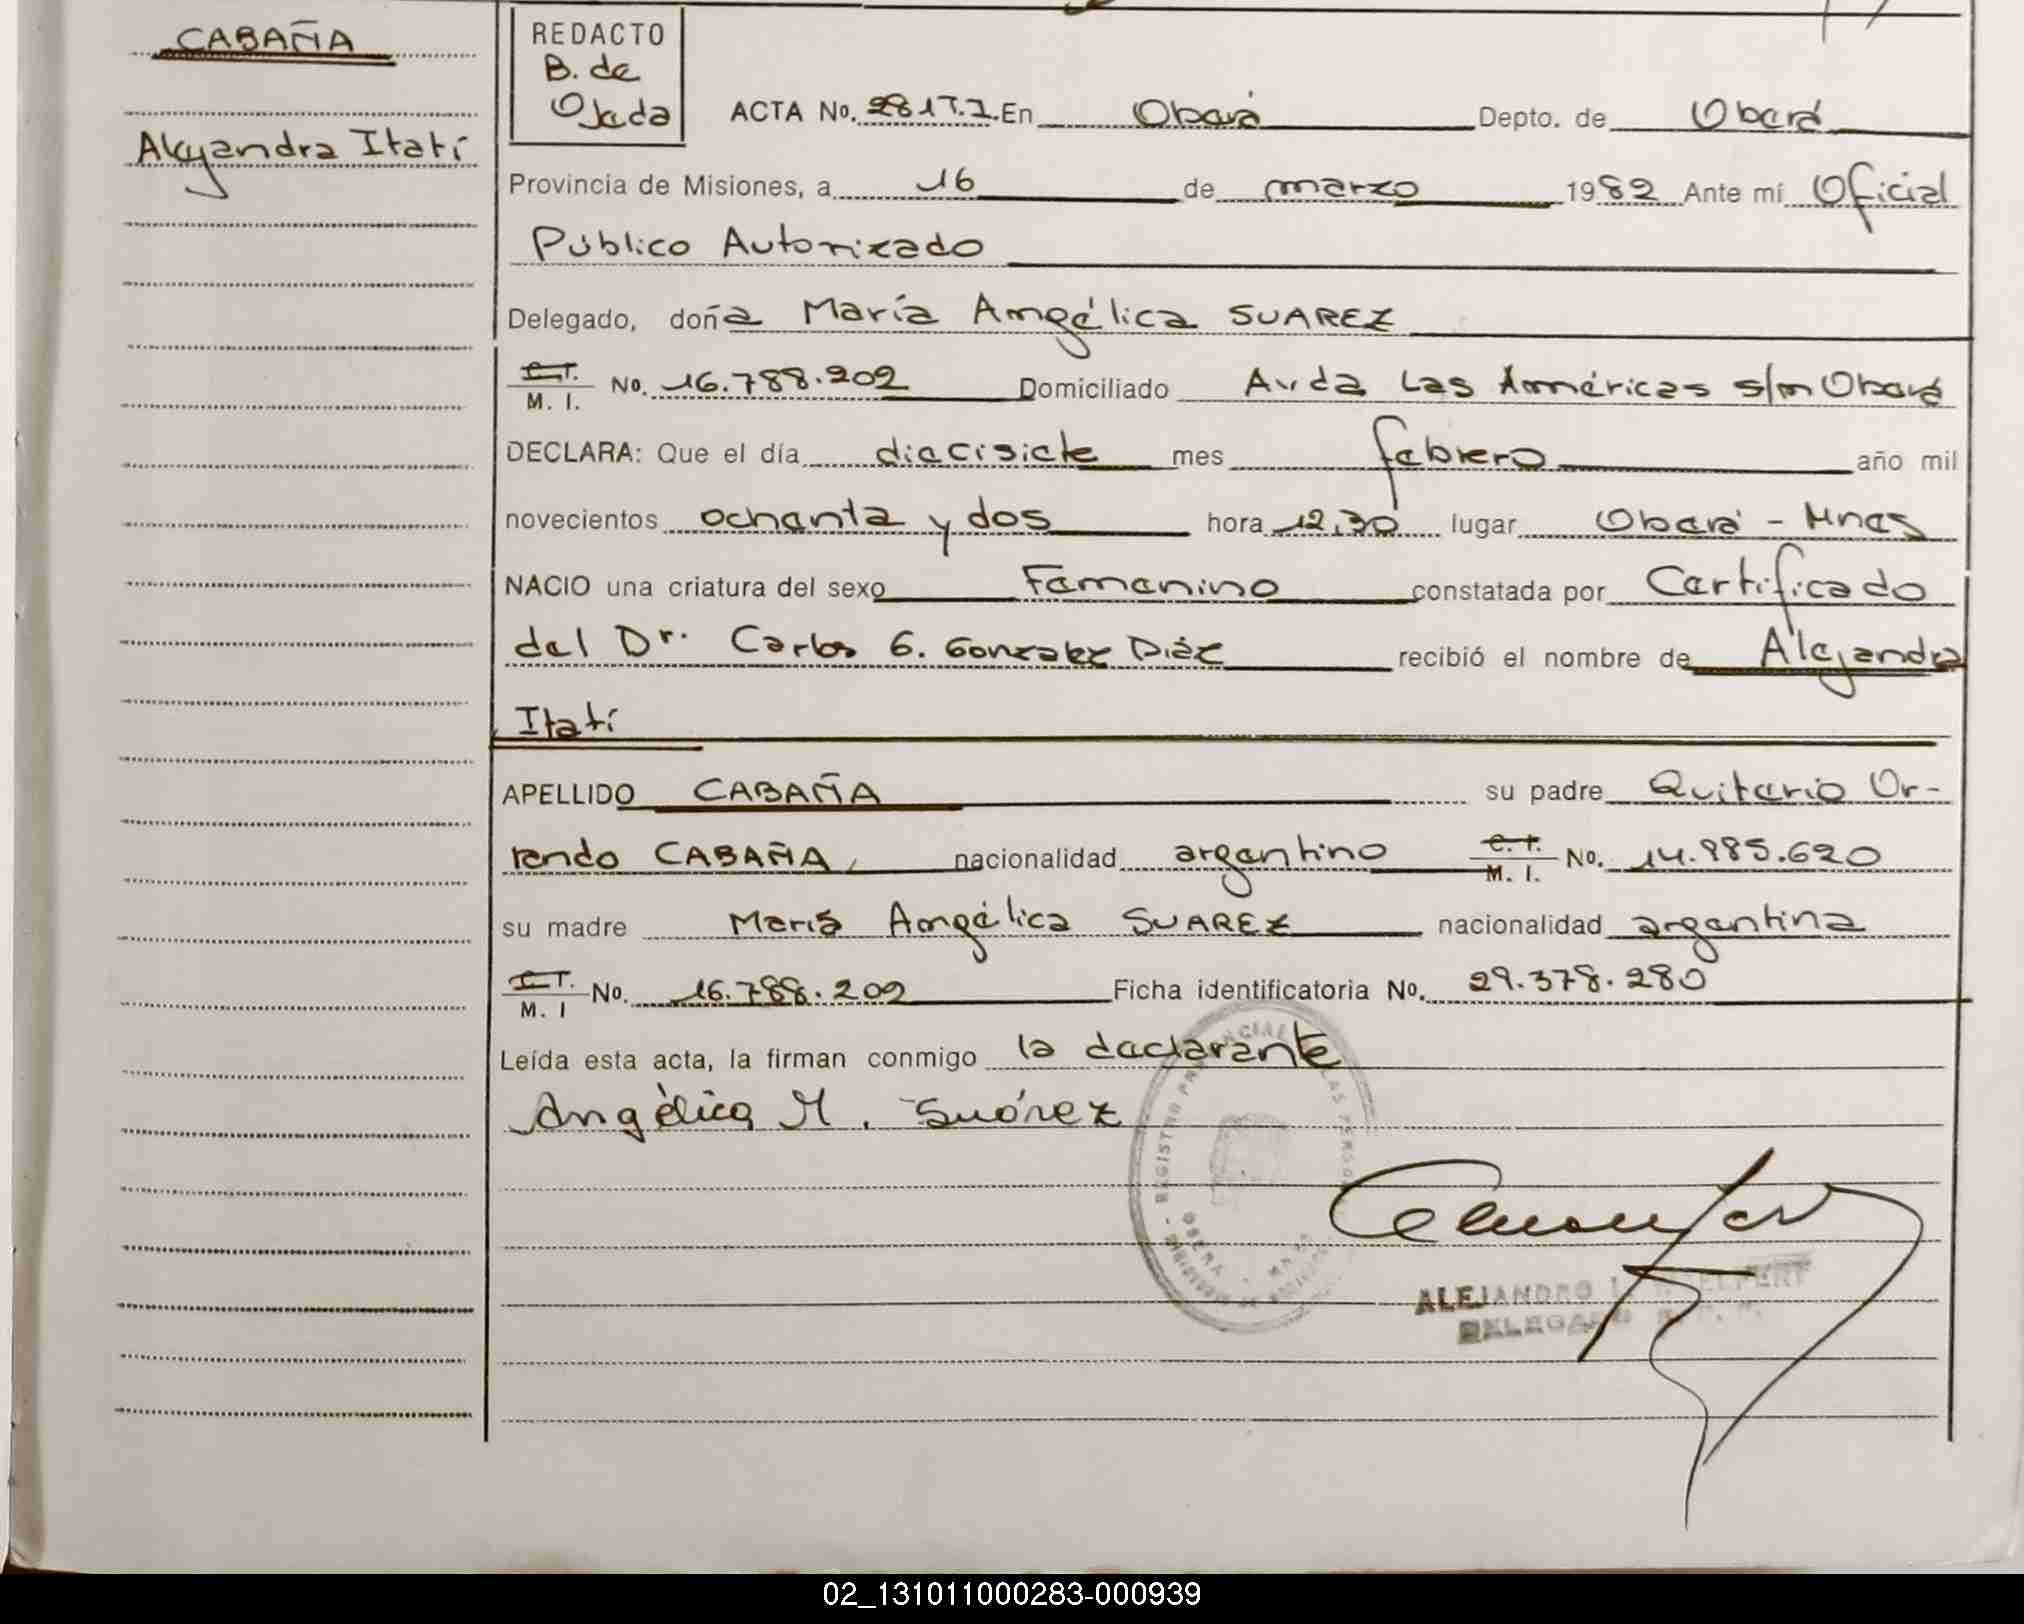 CABAÑA
Alejandra Itatí
REDACTO
B. de
Ojeda
ACTA No. 281T.I. En Oberá Depto. de Oberá
Provincia de Misiones, a 16 de marzo 1982 Ante mí Oficial
Público Autorizado
Delegado, doña María Angélica SUAREZ
C.I. M. I. No. 16.788.202 Domiciliado Avda Las Américas s/n Oberá
DECLARA: Que el día diecisiete mes febrero año mil
novecientos ochenta y dos hora 12,30 lugar Oberá - Mnes
NACIO una criatura del sexo Femenino constatada por Certificado
del Dr. Carlos G. Gonzalez Diáz recibió el nombre de Alejandra
Itatí
APELLIDO CABAÑA su padre Quiterio Or-
lando CABAÑA, nacionalidad argentino C.I. M. I. No. 14.985.620
su madre María Angélica SUAREZ nacionalidad argentina
C.I. M. I No. 16.788.202 Ficha identificatoria No. 29.378.280
Leída esta acta, la firman conmigo la declarante
Angélica M. Suárez
REGISTRO PROVINCIAL LAS PERSO
OBERA
ALEJANDRO
DELEGADO
02_131011000283-000939